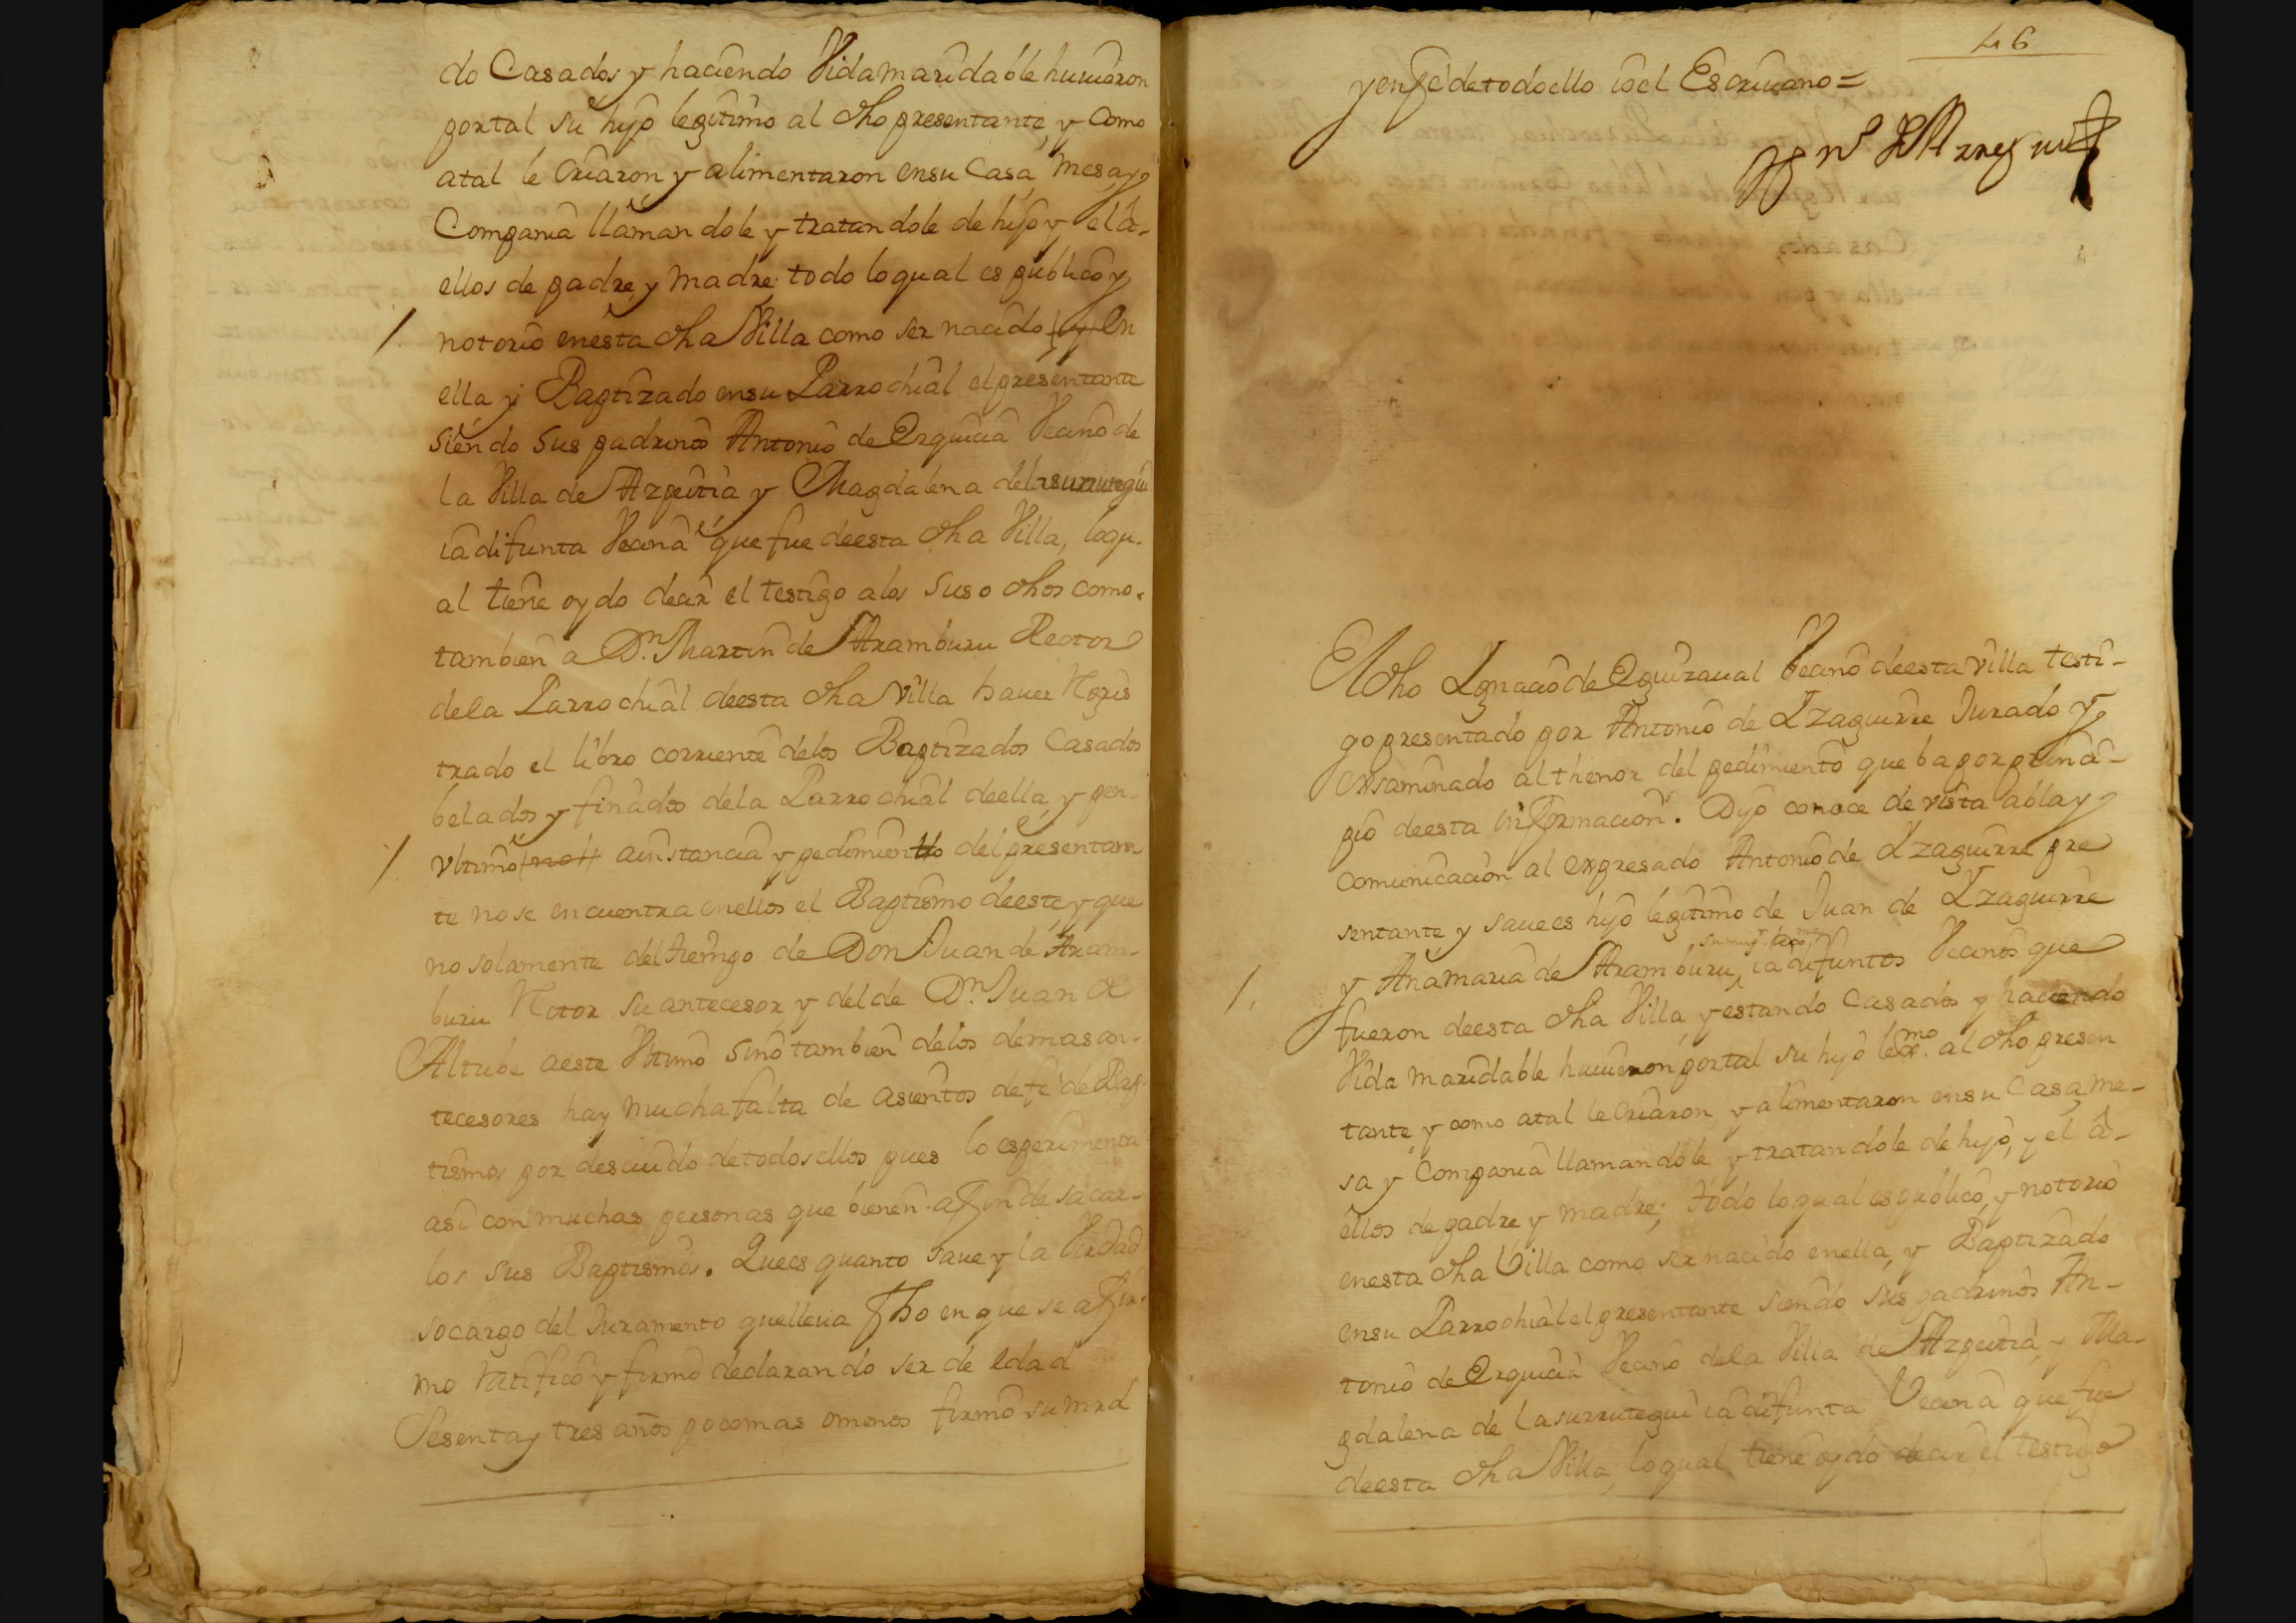 do Casados y haciendo Vida maridable huuieron
por tal su hijo legitimo al dho presentante, y Como
atal le Criaron y alimentaron en su Casa Mesa y
Compania llamandole y tratandole de hijo y el â
ellos de padre y madre; todo lo qual es publico y
notorio en esta dha Villa como ser nacido (y) En
ella y Baptizado en su Parrochial el presentante
siendo sus padrinos Antonio de Erquicia Vecino de
la Villa de Azpeitia y Magdalena de lasurrutegui
ia difunta Vecina que fue de esta dha Villa, loqu-
al tiene oydo decir el testigo alos suso dhos como.
tambien a Dn. Martin de Aramburu Rector
dela Parrochial deesta dha Villa hauer Regis
trado el libro corriente delos Baptizados Casados
belados y finados dela Parrochial deella, y por
vltimo a instancia y pedimiento del presentan
te no se encuentra enellos el Baptismo deeste y que
no solamente del tiempo de Don Juan de Aram-
buru Retor su antecesor y del de Dn. Juan de
Altube aeste Vltimo sino tambien delos demas an-
tecesores hay mucha falta de asientos de fe de Bap-
tismos por descuido detodos ellos pues lo esperimenta
asi con muchas personas que bienen afin de sacar-
los sus Baptismos. Que es quanto saue y la Verdad
so cargo del Juramento que lleua fho en que se afir-
mo ratifico y firmo declarando ser de edad de
Sesenta y tres años poco mas o menos firmo su mrd
46
y en fe de todo ello io el Escriuano =
El dho Ignacio de Eguizaual Vecino deesta villa testi-
go presentado por Antonio de Yzaguirre Jurado y
exsaminado al thenor del pedimiento que ba por princi-
pio deesta informacion. Dijo conoce de vista abla y
comunicacion al expresado Antonio de Yzaguirre pre
sentante y saue es hijo legitimo de Juan de Yzaguirre
su mugr. lexma
y Ana maria de Aramburu, ia difuntos Vecinos que
fueron deesta dha Villa, y estando Casados y haciendo
Vida maridable huuieron por tal su hijo legmo. al dho presen
tante y como atal le Criaron, y alimentaron en su Casa, me-
sa y Compania llamandole y tratandole de hijo, y el â-
ellos de padre y madre; todo lo qual es publico, y notorio
en esta dha Villa como ser nacido en ella, y Baptizado
en su Parrochial el presentante siendo sus padrinos An-
tonio de Erquicia Vecino dela Villa de Azpeitia y Ma-
gdalena de lasurrutegui ia difunta Vecina que fue
deesta dha Villa, lo qual tiene oydo decir el testigo